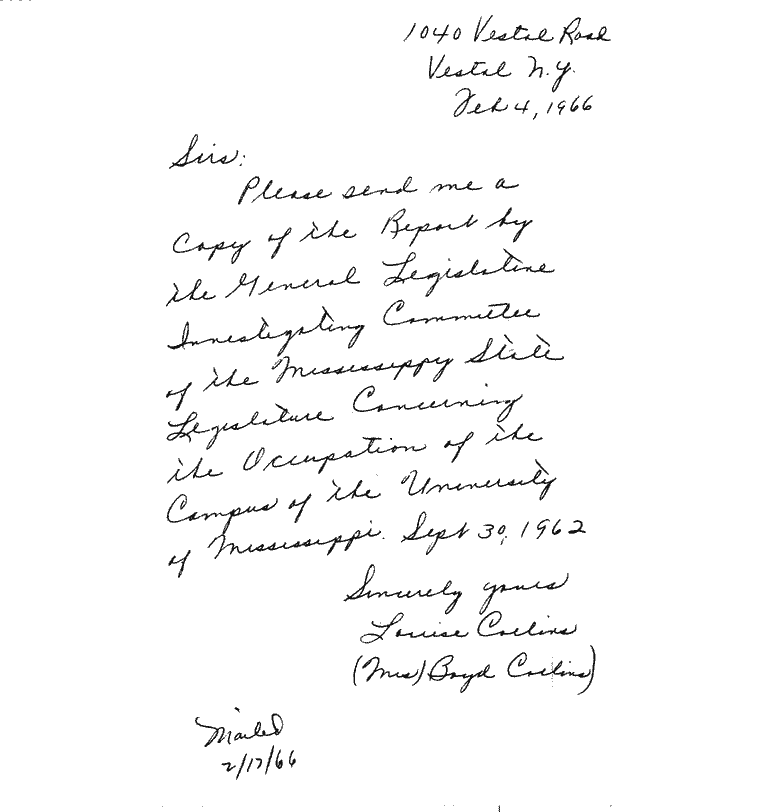 1040 Vestal Road
Vestal N.Y.
Feb 4, 1966
Sirs:
Please send me a
Copy of the Report by
the General Legislative
Investigating Committee
of the Mississippy State
Legislature Concerning
the Occupation of the
Campus of the University
of Mississippi. Sept 30, 1962
Sincerely yours
Louise Collins
(Mrs) Boyd Collins)
Mailed
2/17/66